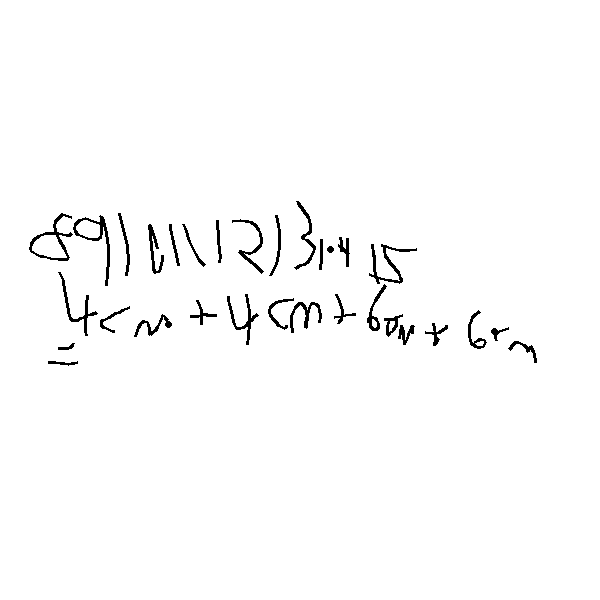 8 9 10 11 12 13 14 15
4cm + 4cm + 6cm + 6cm
=